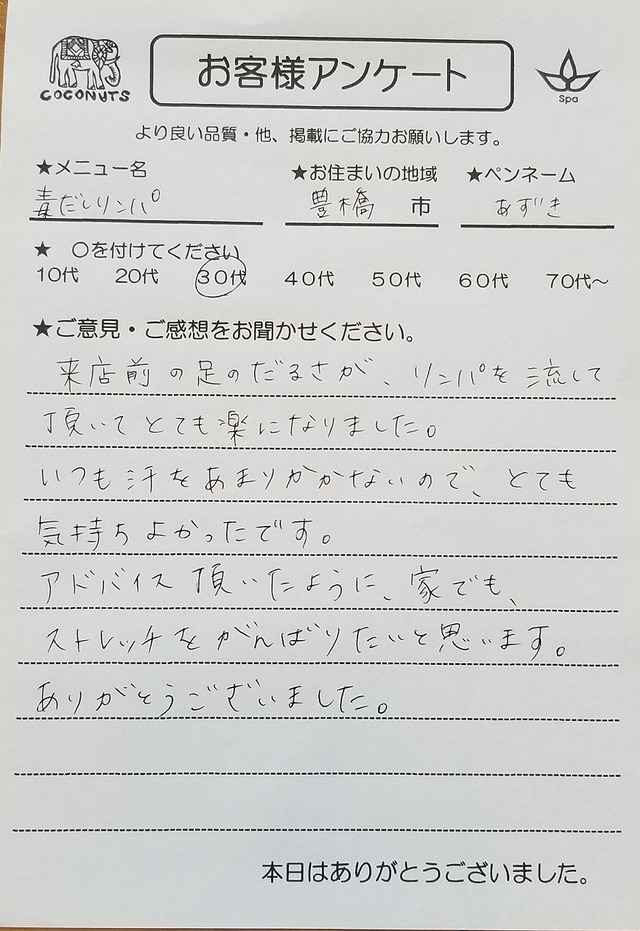 COCONUTS
お客様アンケート
Spa
より良い品質・他、掲載にご協力お願いします。
★メニュー名 ★お住まいの地域 ★ペンネーム
毒だしリンパ 豊橋 市 あずき
★ 〇を付けてください
10代 20代 30代 40代 50代 60代 70代～
★ご意見・ご感想をお聞かせください。
来店前の足のだるさが、リンパを流して
頂いてとても楽になりました。
いつも汗をあまりかかないので、とても
気持ちよかったです。
アドバイス頂いたように、家でも、
ストレッチをがんばりたいと思います。
ありがとうございました。
本日はありがとうございました。